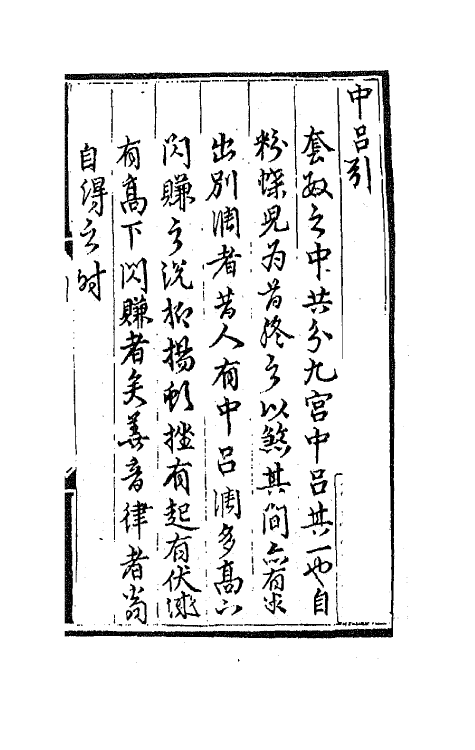 中呂引
套數之中共分九宮中呂其一也自
粉蝶兒為首終之以煞其間亦有
出別調者昔人有中呂調多高下
閃賺之說抑揚頓挫有起有伏
有高下閃賺者矣善音律者當
自得之時